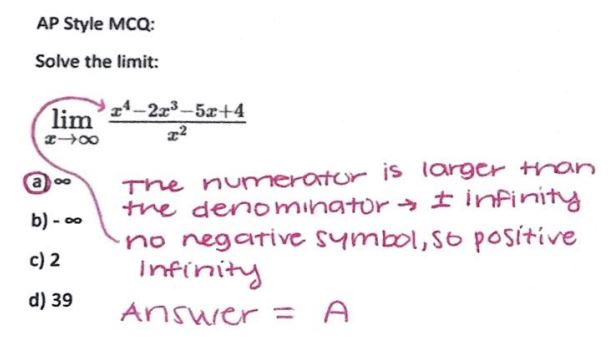 AP Style MCQ:
Solve the limit:
lim x→∞ x⁴−2x³−5x+4 / x²
a) ∞
The numerator is larger than
the denominator → ± infinity
b) - ∞
no negative symbol, so positive
infinity
c) 2
d) 39
Answer = A